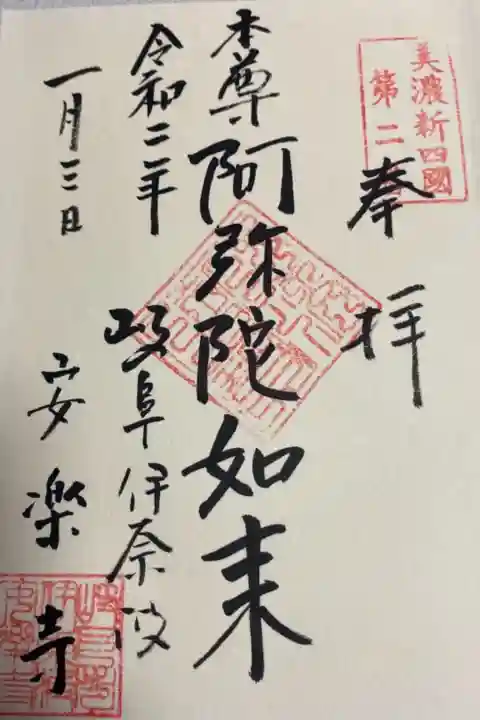 美濃新四國
第二
奉拝
本尊 阿弥陀如来
令和二年 岐阜伊奈波
一月三日 安楽寺